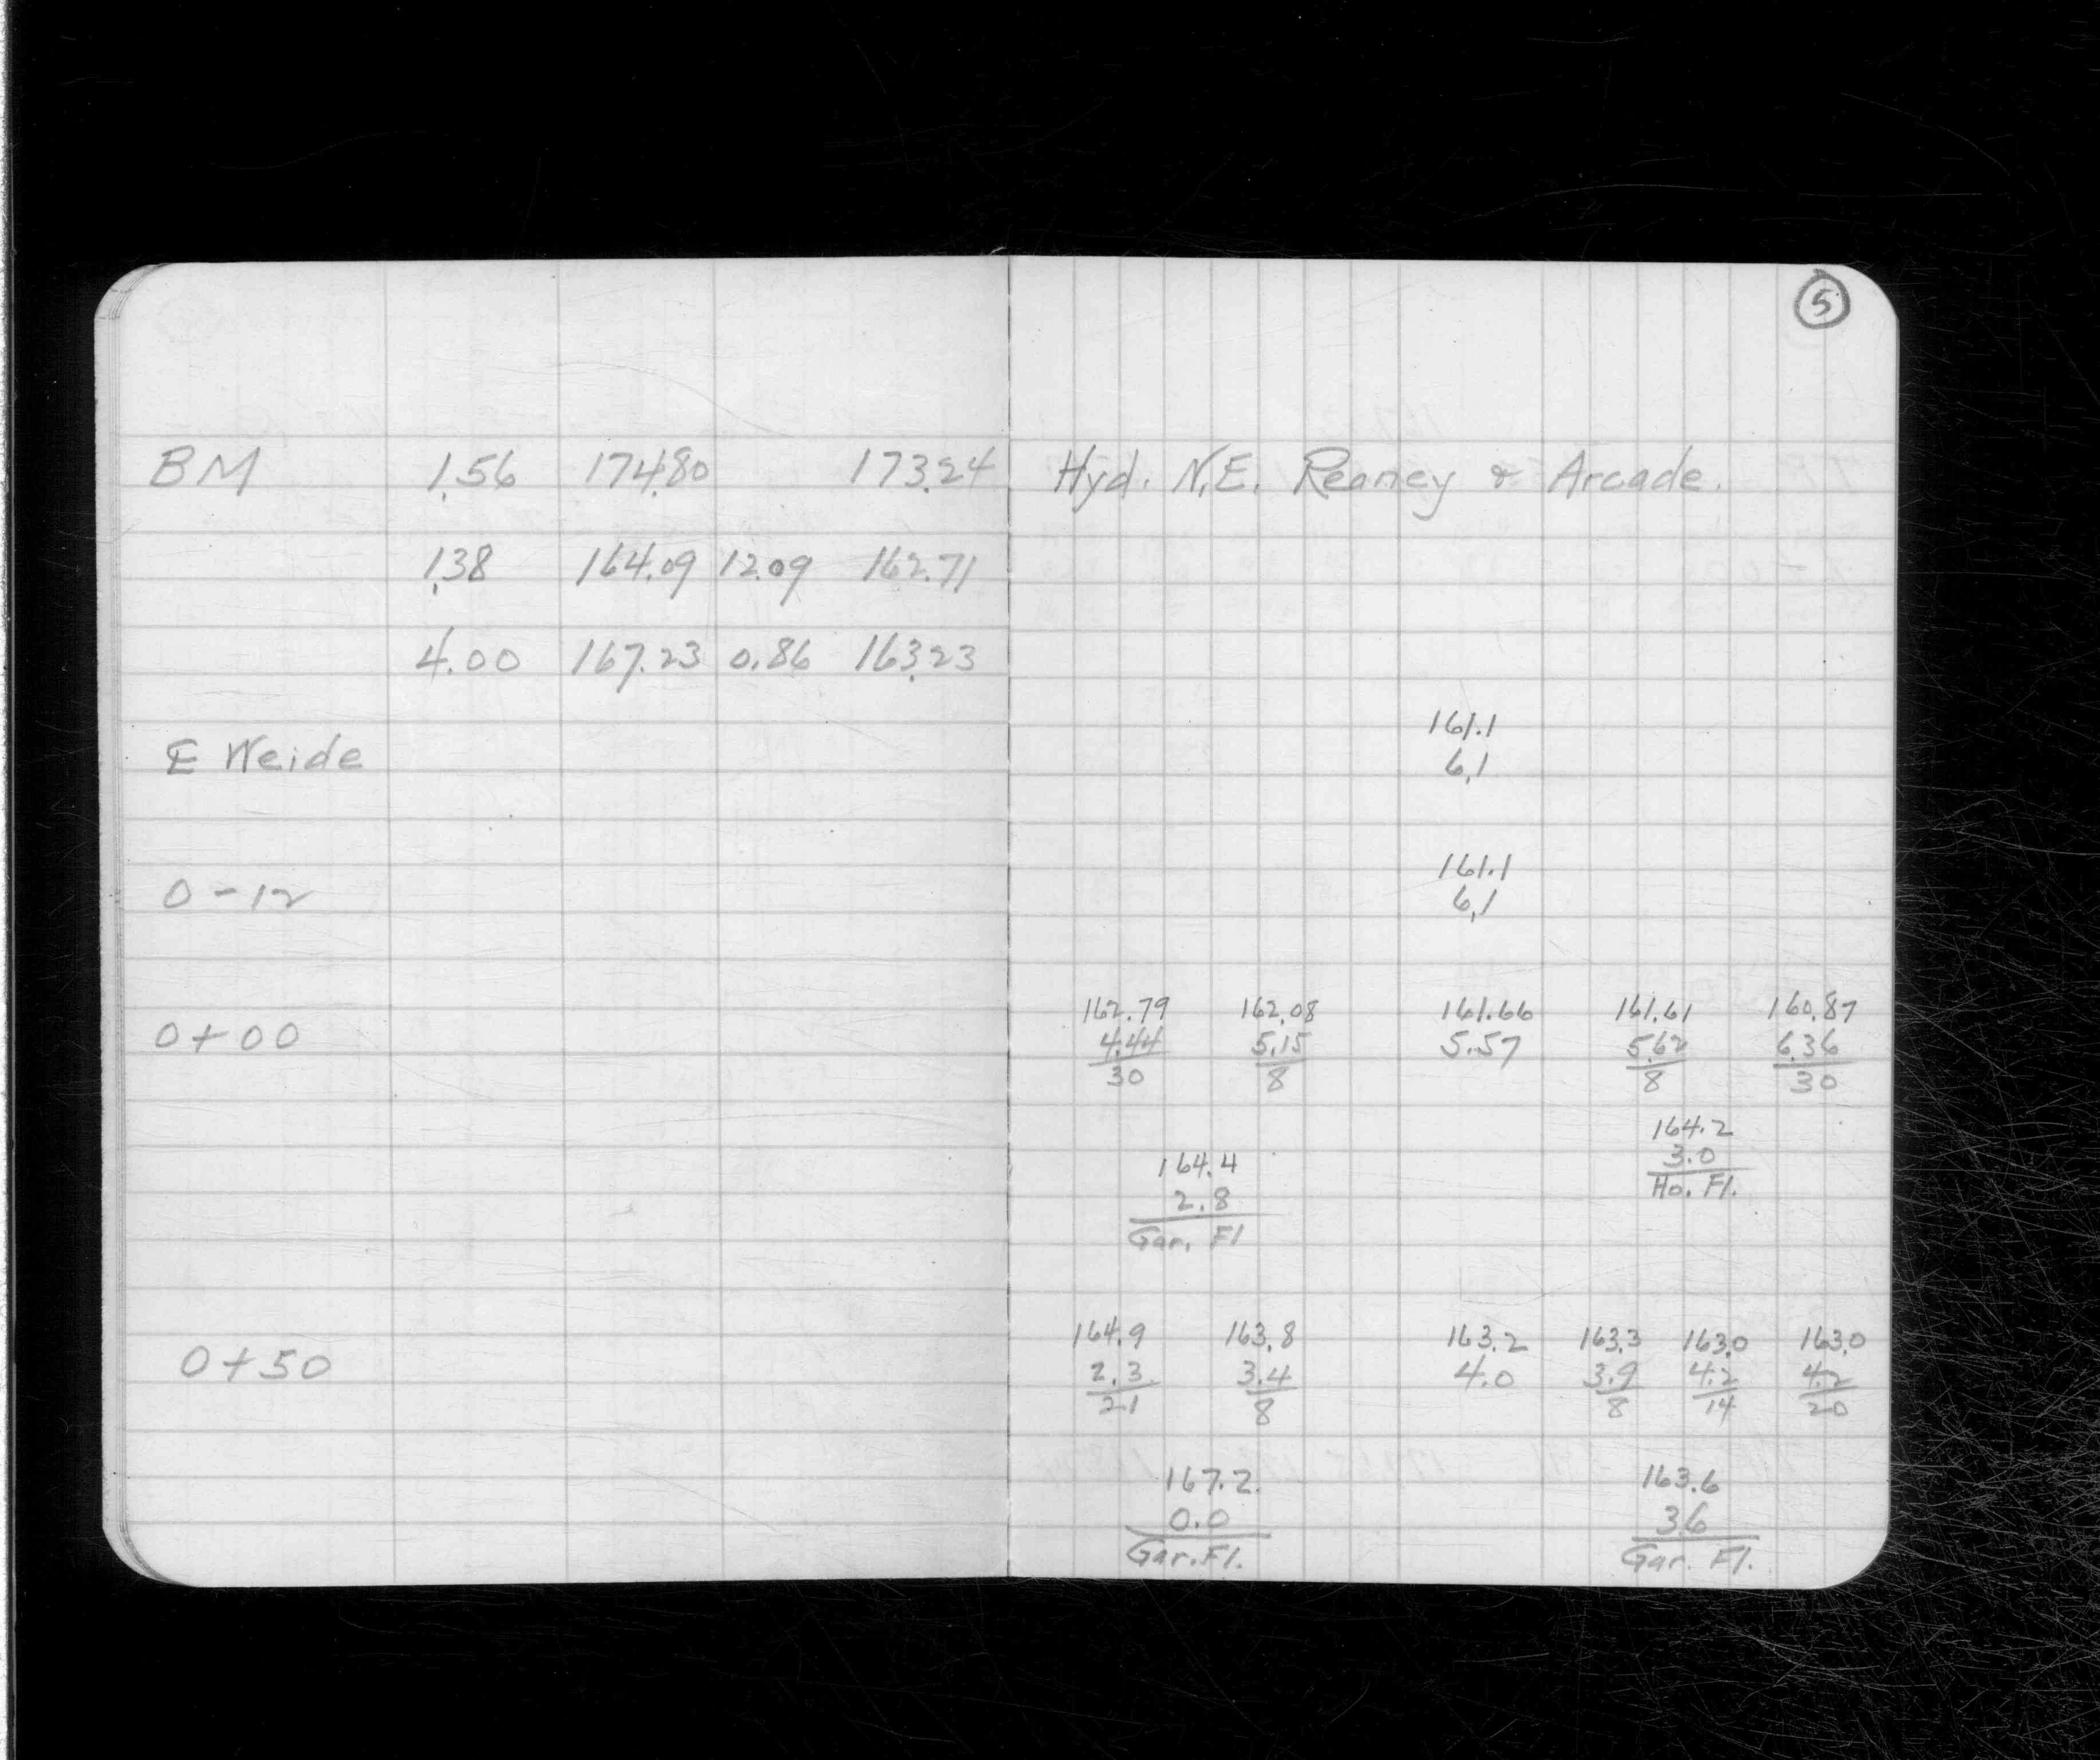 5
BM 1.56 174.80 173.24 Hyd. N.E. Reaney & Arcade.
1.38 164.09 12.09 162.71
4.00 167.23 0.86 163.23
161.1
℄ Weide 6.1
161.1
0-12 6.1
162.79 162.08 161.66 161.61 160.87
0+00 4.44 5.15 5.57 5.62 6.36
30 8 8 30
164.2
164.4 3.0
2.8 Ho. Fl.
Gar. Fl
164.9 163.8 163.2 163.3 163.0 163.0
0+50 2.3 3.4 4.0 3.9 4.2 4.2
21 8 8 14 20
167.2 163.6
0.0 3.6
Gar. Fl. Gar. Fl.